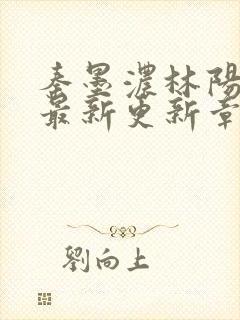 秦墨濃林陽
最新更新章
劉向上